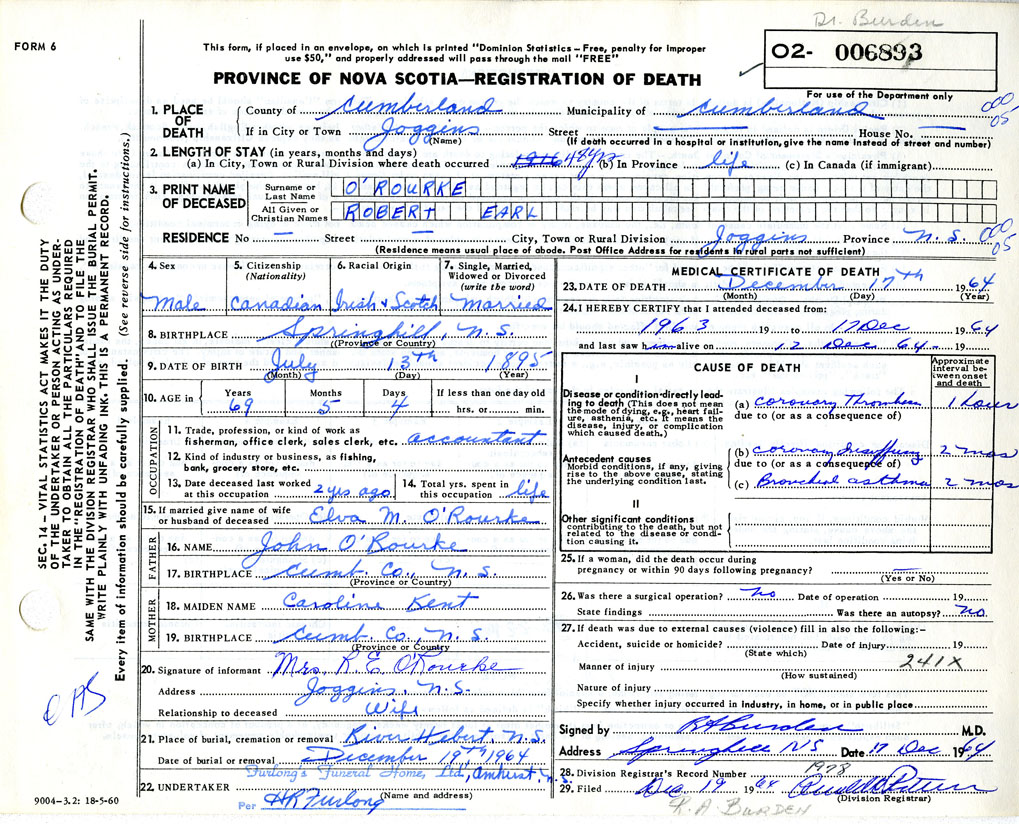 Dr. Burden
FORM 6
This form, if placed in an envelope, on which is printed "Dominion Statistics – Free, penalty for improper
use $50," and properly addressed will pass through the mail "FREE"
PROVINCE OF NOVA SCOTIA—REGISTRATION OF DEATH
02- 006893
For use of the Department only
1. PLACE OF DEATH County of Cumberland Municipality of Cumberland
If in City or Town Joggins Street — House No. —
(Name) (If death occurred in a hospital or institution, give the name instead of street and number)
2. LENGTH OF STAY (in years, months and days)
(a) In City, Town or Rural Division where death occurred 1916 48 yrs (b) In Province life (c) In Canada (if immigrant)
3. PRINT NAME OF DECEASED Surname or Last Name O'ROURKE
All Given or Christian Names ROBERT EARL
RESIDENCE No — Street — City, Town or Rural Division Joggins Province N.S.
(Residence means usual place of abode. Post Office Address for residents in rural parts not sufficient)
000
05
000
05
4. Sex Male
5. Citizenship (Nationality) Canadian
6. Racial Origin Irish & Scotch
7. Single, Married, Widowed or Divorced (write the word) Married
8. BIRTHPLACE Springhill, N.S.
(Province or Country)
9. DATE OF BIRTH July 13th 1895
(Month) (Day) (Year)
10. AGE in Years 69 Months 5 Days 4 If less than one day old hrs. or min.
OCCUPATION
11. Trade, profession, or kind of work as
fisherman, office clerk, sales clerk, etc. accountant
12. Kind of industry or business, as fishing,
bank, grocery store, etc.
13. Date deceased last worked at this occupation 2 yrs ago 14. Total yrs. spent in this occupation life
15. If married give name of wife
or husband of deceased Elva M. O'Rourke
FATHER
16. NAME John O'Rourke
17. BIRTHPLACE Cumb. Co., N.S.
(Province or Country)
MOTHER
18. MAIDEN NAME Caroline Kent
19. BIRTHPLACE Cumb. Co., N.S.
(Province or Country)
20. Signature of informant Mrs. R E O'Rourke
Address Joggins, N.S.
Relationship to deceased Wife
21. Place of burial, cremation or removal River Hebert, N.S.
Date of burial or removal December 19th, 1964
Furlong's Funeral Home, Ltd., Amherst, N.S.
22. UNDERTAKER (Name and address)
Per HR Furlong
MEDICAL CERTIFICATE OF DEATH
23. DATE OF DEATH December 17th 1964
(Month) (Day) (Year)
24. I HEREBY CERTIFY that I attended deceased from:
1963 19 to 17 Dec 1964
and last saw him alive on 12 Dec 64 19
CAUSE OF DEATH
Approximate interval between onset and death
I
Disease or condition directly leading to death (This does not mean the mode of dying, e.g., heart failure, asthenia, etc. It means the disease, injury, or complication which caused death.)
(a) Coronary Thrombosis 1 hour
due to (or as a consequence of)
Antecedent causes
Morbid conditions, if any, giving rise to the above cause, stating the underlying condition last.
(b) Coronary Insufficiency 2 mos
due to (or as a consequence of)
(c) Bronchial asthma 2 mos
II
Other significant conditions
contributing to the death, but not related to the disease or condition causing it.
25. If a woman, did the death occur during
pregnancy or within 90 days following pregnancy? —
(Yes or No)
26. Was there a surgical operation? no Date of operation 19
State findings Was there an autopsy? no
27. If death was due to external causes (violence) fill in also the following:–
Accident, suicide or homicide? Date of injury 19
(State which)
241X
Manner of injury
(How sustained)
Nature of injury
Specify whether injury occurred in industry, in home, or in public place
Signed by RA Burden M.D.
Address Springhill NS Date 17 Dec 1964
28. Division Registrar's Record Number 1978
29. Filed Dec 19 1964
(Division Registrar)
R. A BURDEN
SEC. 14 – VITAL STATISTICS ACT MAKES IT THE DUTY
OF THE UNDERTAKER OR PERSON ACTING AS UNDERTAKER TO OBTAIN ALL THE PARTICULARS REQUIRED
IN THE "REGISTRATION OF DEATH" AND TO FILE THE
SAME WITH THE DIVISION REGISTRAR WHO SHALL ISSUE THE BURIAL PERMIT.
WRITE PLAINLY WITH UNFADING INK. THIS IS A PERMANENT RECORD.
Every item of information should be carefully supplied. (See reverse side for instructions.)
9004-3.2: 18-5-60